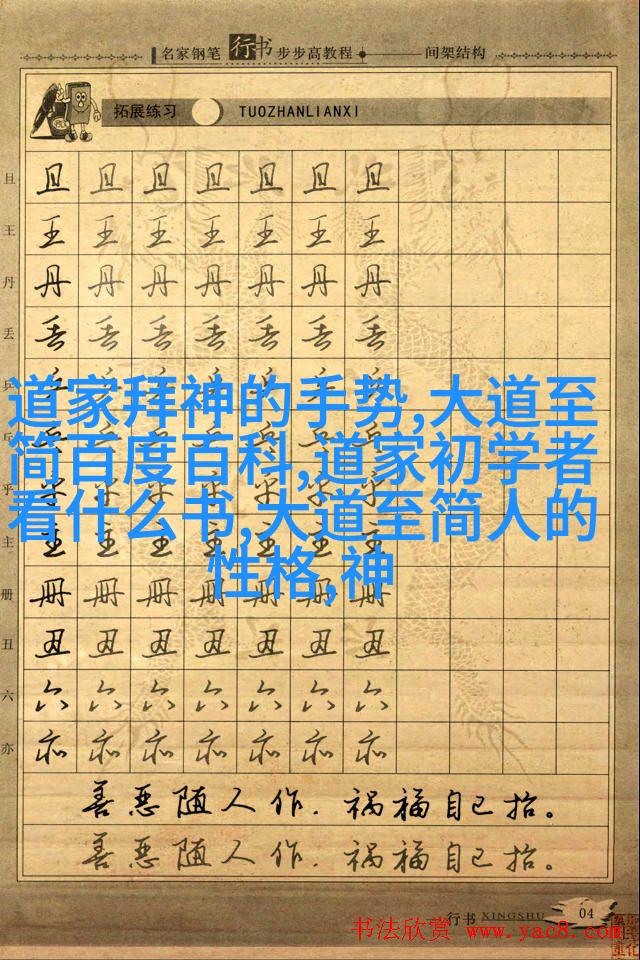 名家钢笔行书步步高教程 间架结构
拓展练习 TUOZHANLIANXI
且 且 且 且 且 且 且 且
王 王 王 王 王 王 王 王
丹 丹 丹 丹 丹 丹 丹 丹
丢 丢 丢 丢 丢 丢 丢 丢
道家拜神的手势,大道至
简百度百科,道家初学者
看什么书,大道至简人的
性格,神
乒
乓
乎
主
册 册 册 册 册 册 册 册
丑 丑 丑 丑 丑 丑 丑 丑
六 六 六 六 六 六 六 六
亦 亦 亦 亦 亦 亦 亦 亦
善恶随人作.祸福自己招。
善恶随人作.祸福自己招。
行书 XINGSHU 04
书法欣赏 www.yac8.com